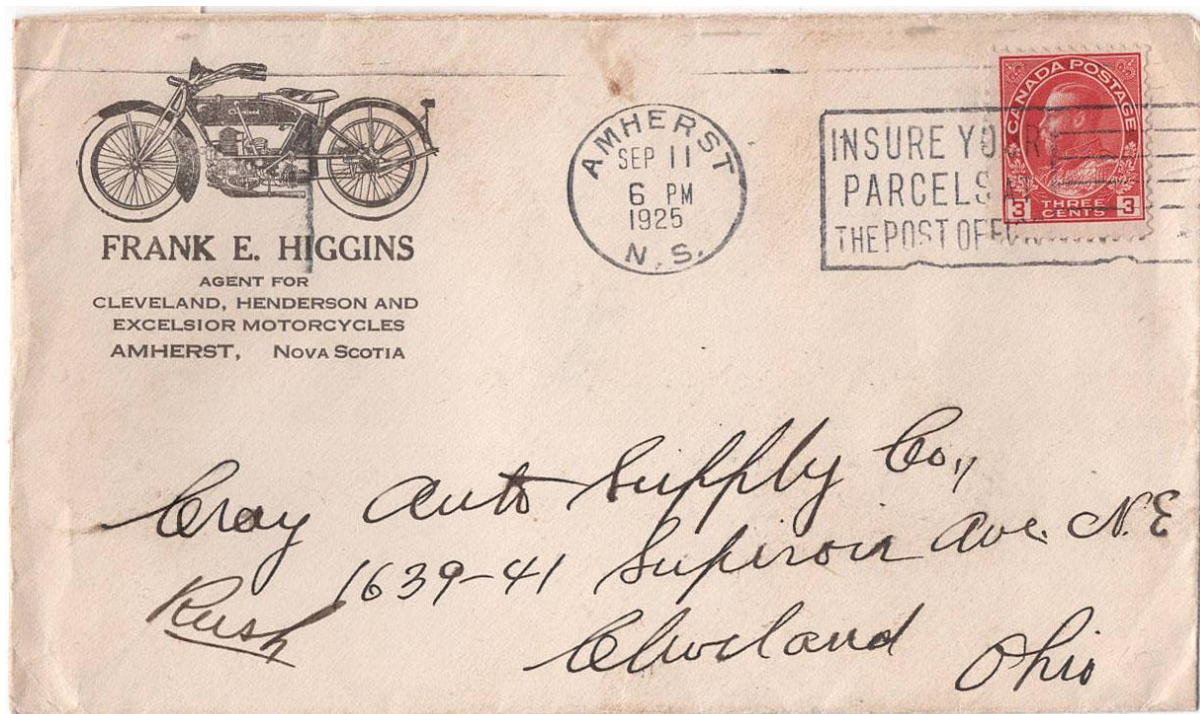 Cleveland
FRANK E. HIGGINS
AGENT FOR
CLEVELAND, HENDERSON AND
EXCELSIOR MOTORCYCLES
AMHERST, NOVA SCOTIA
AMHERST
SEP 11
6 PM
1925
N.S.
INSURE YOUR
PARCELS
THE POST OFFIC
CANADA POSTAGE
3 THREE CENTS 3
Cray Auto Supply Co.,
1639-41 Superoir Ave. N.E
Rush
Cleveland Ohio